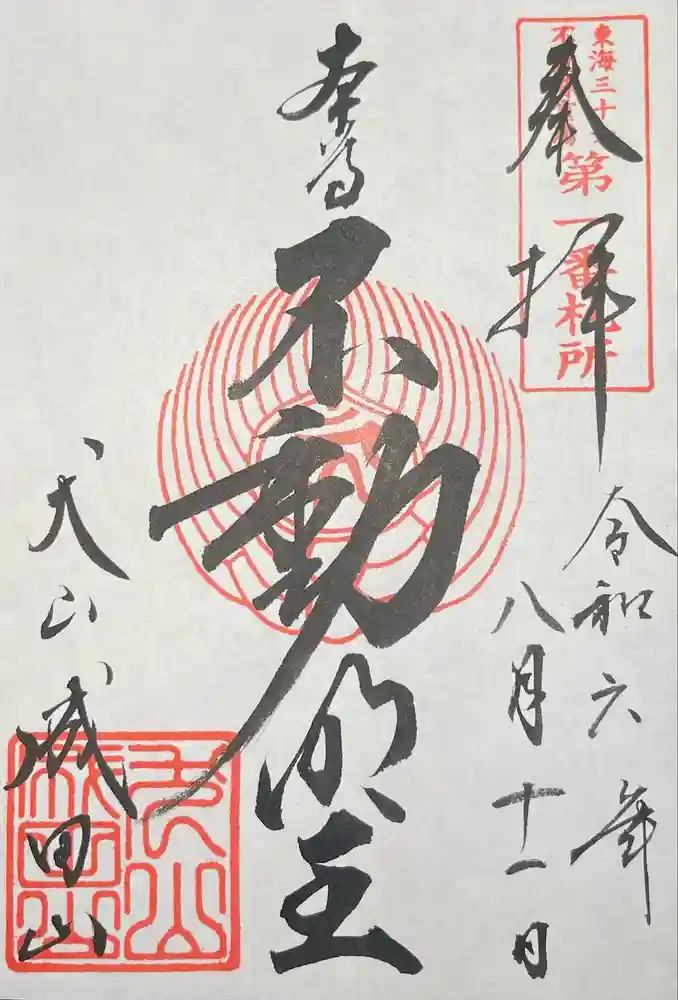 奉拝
東海三十
第一番札所
令和六年
八月十一日
本尊
不動明王
犬山成田山
犬山
成田山